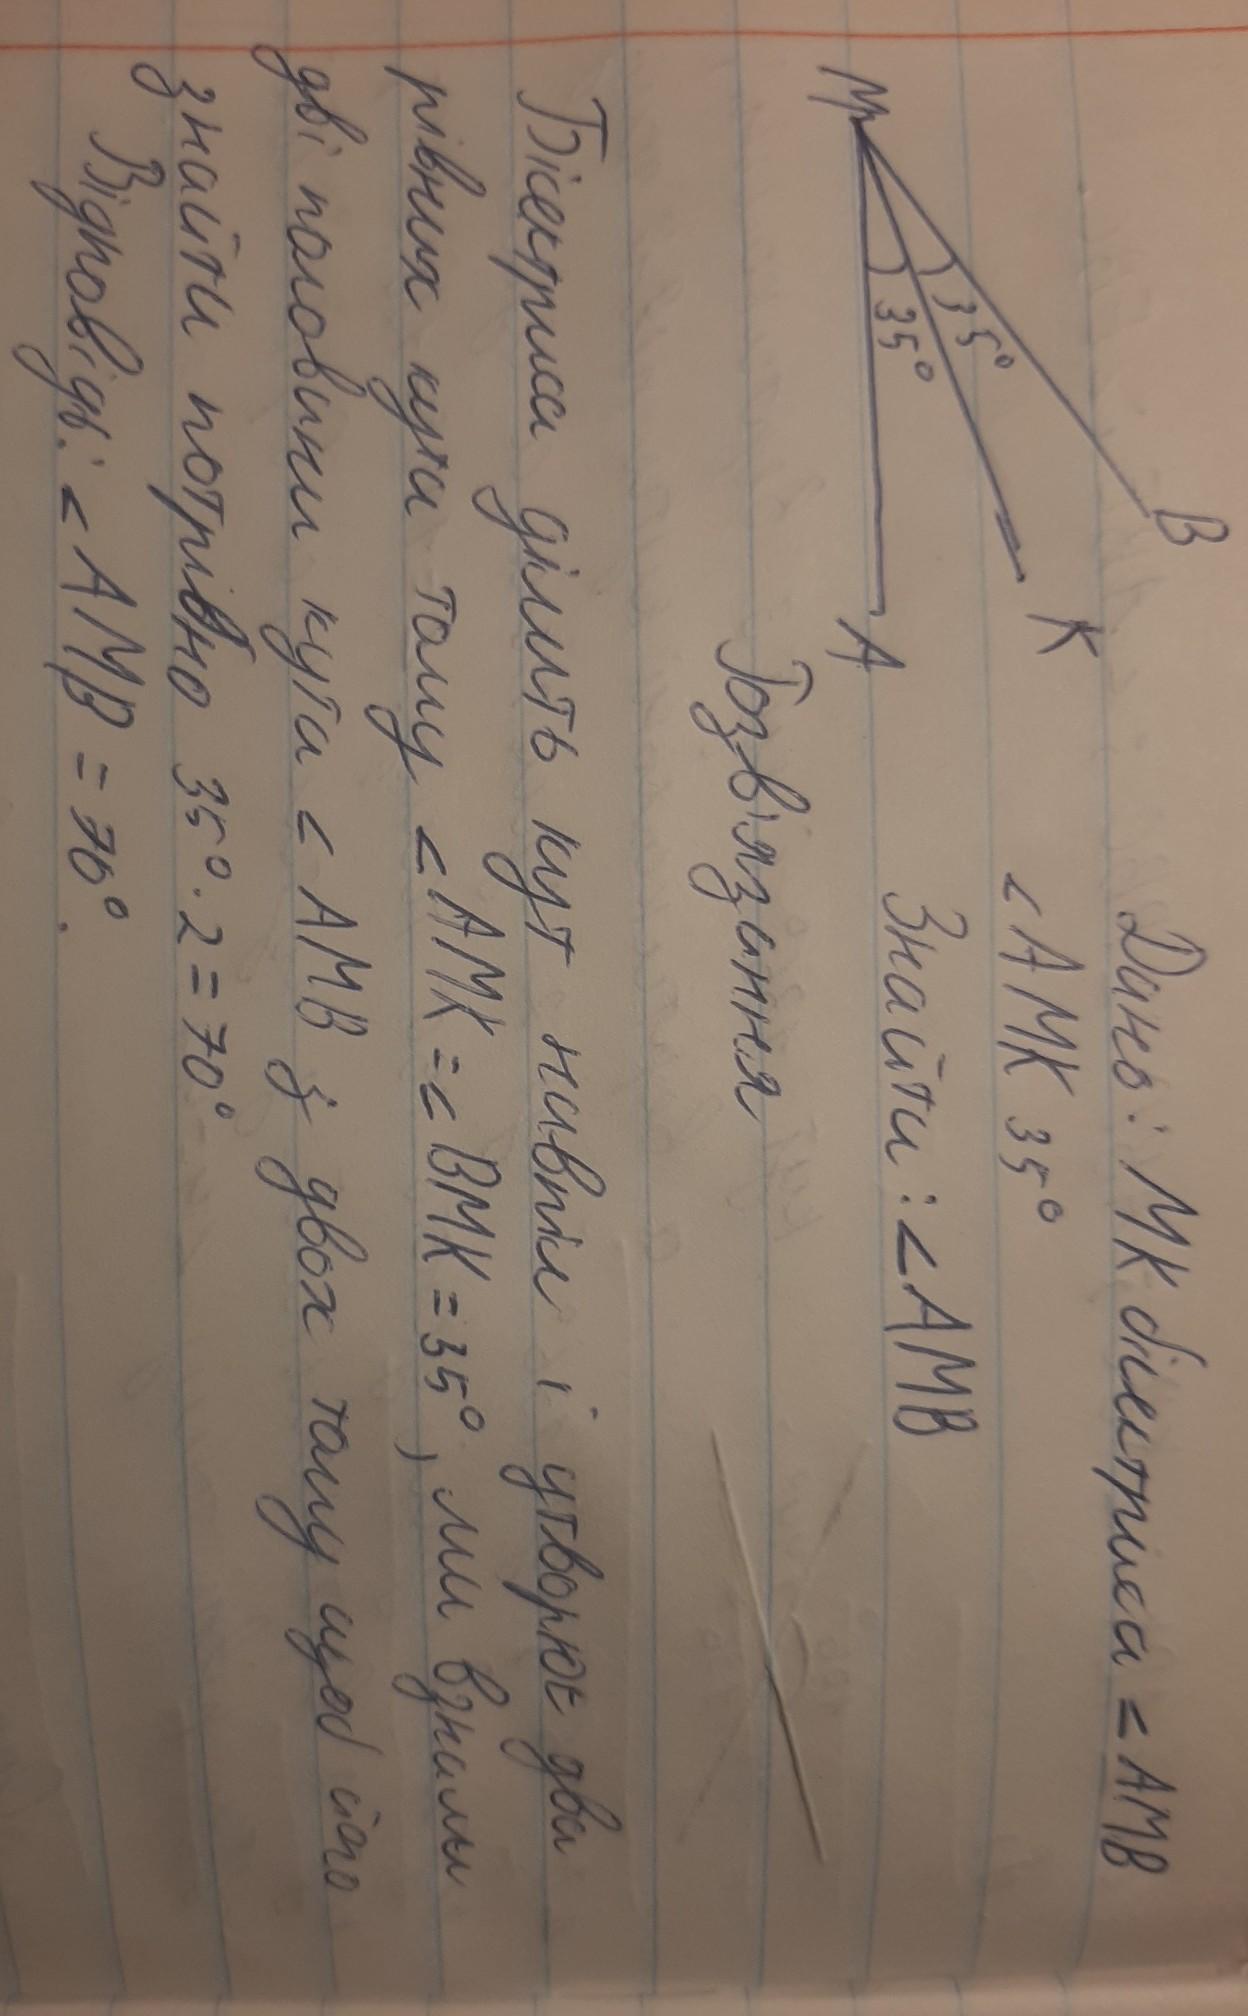 Дано: MK бісектриса < AMB
< AMK 35°
Знайти: < AMB
M
B
K
A
35°
35°
Розвілзання
Бісектриса ділить кут навпіл і утворює два
рівних кути тому < AMK = < BMK = 35°, ми взнали
дві половини кута < AMB з двох тому щоб його
знайти потрівно 35° · 2 = 70°
Відповідь: < AMB = 70°.